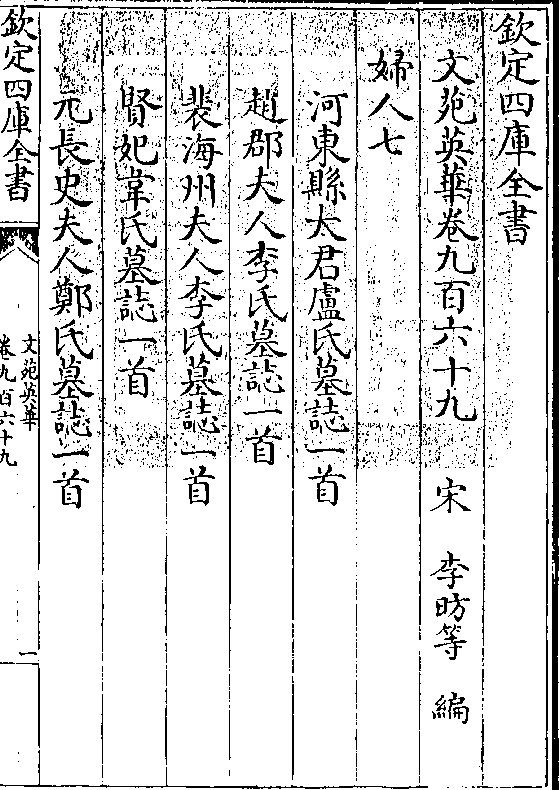 欽定四庫全書
文苑英華卷九百六十九 宋 李昉等 編
婦人七
河東縣太君盧氏墓誌一首
趙郡夫人李氏墓誌一首
裴海州夫人李氏墓誌一首
賢妃韋氏墓誌一首
元長史夫人鄭氏墓誌一首
欽定四庫全書
文苑英華
卷九百六十九
一